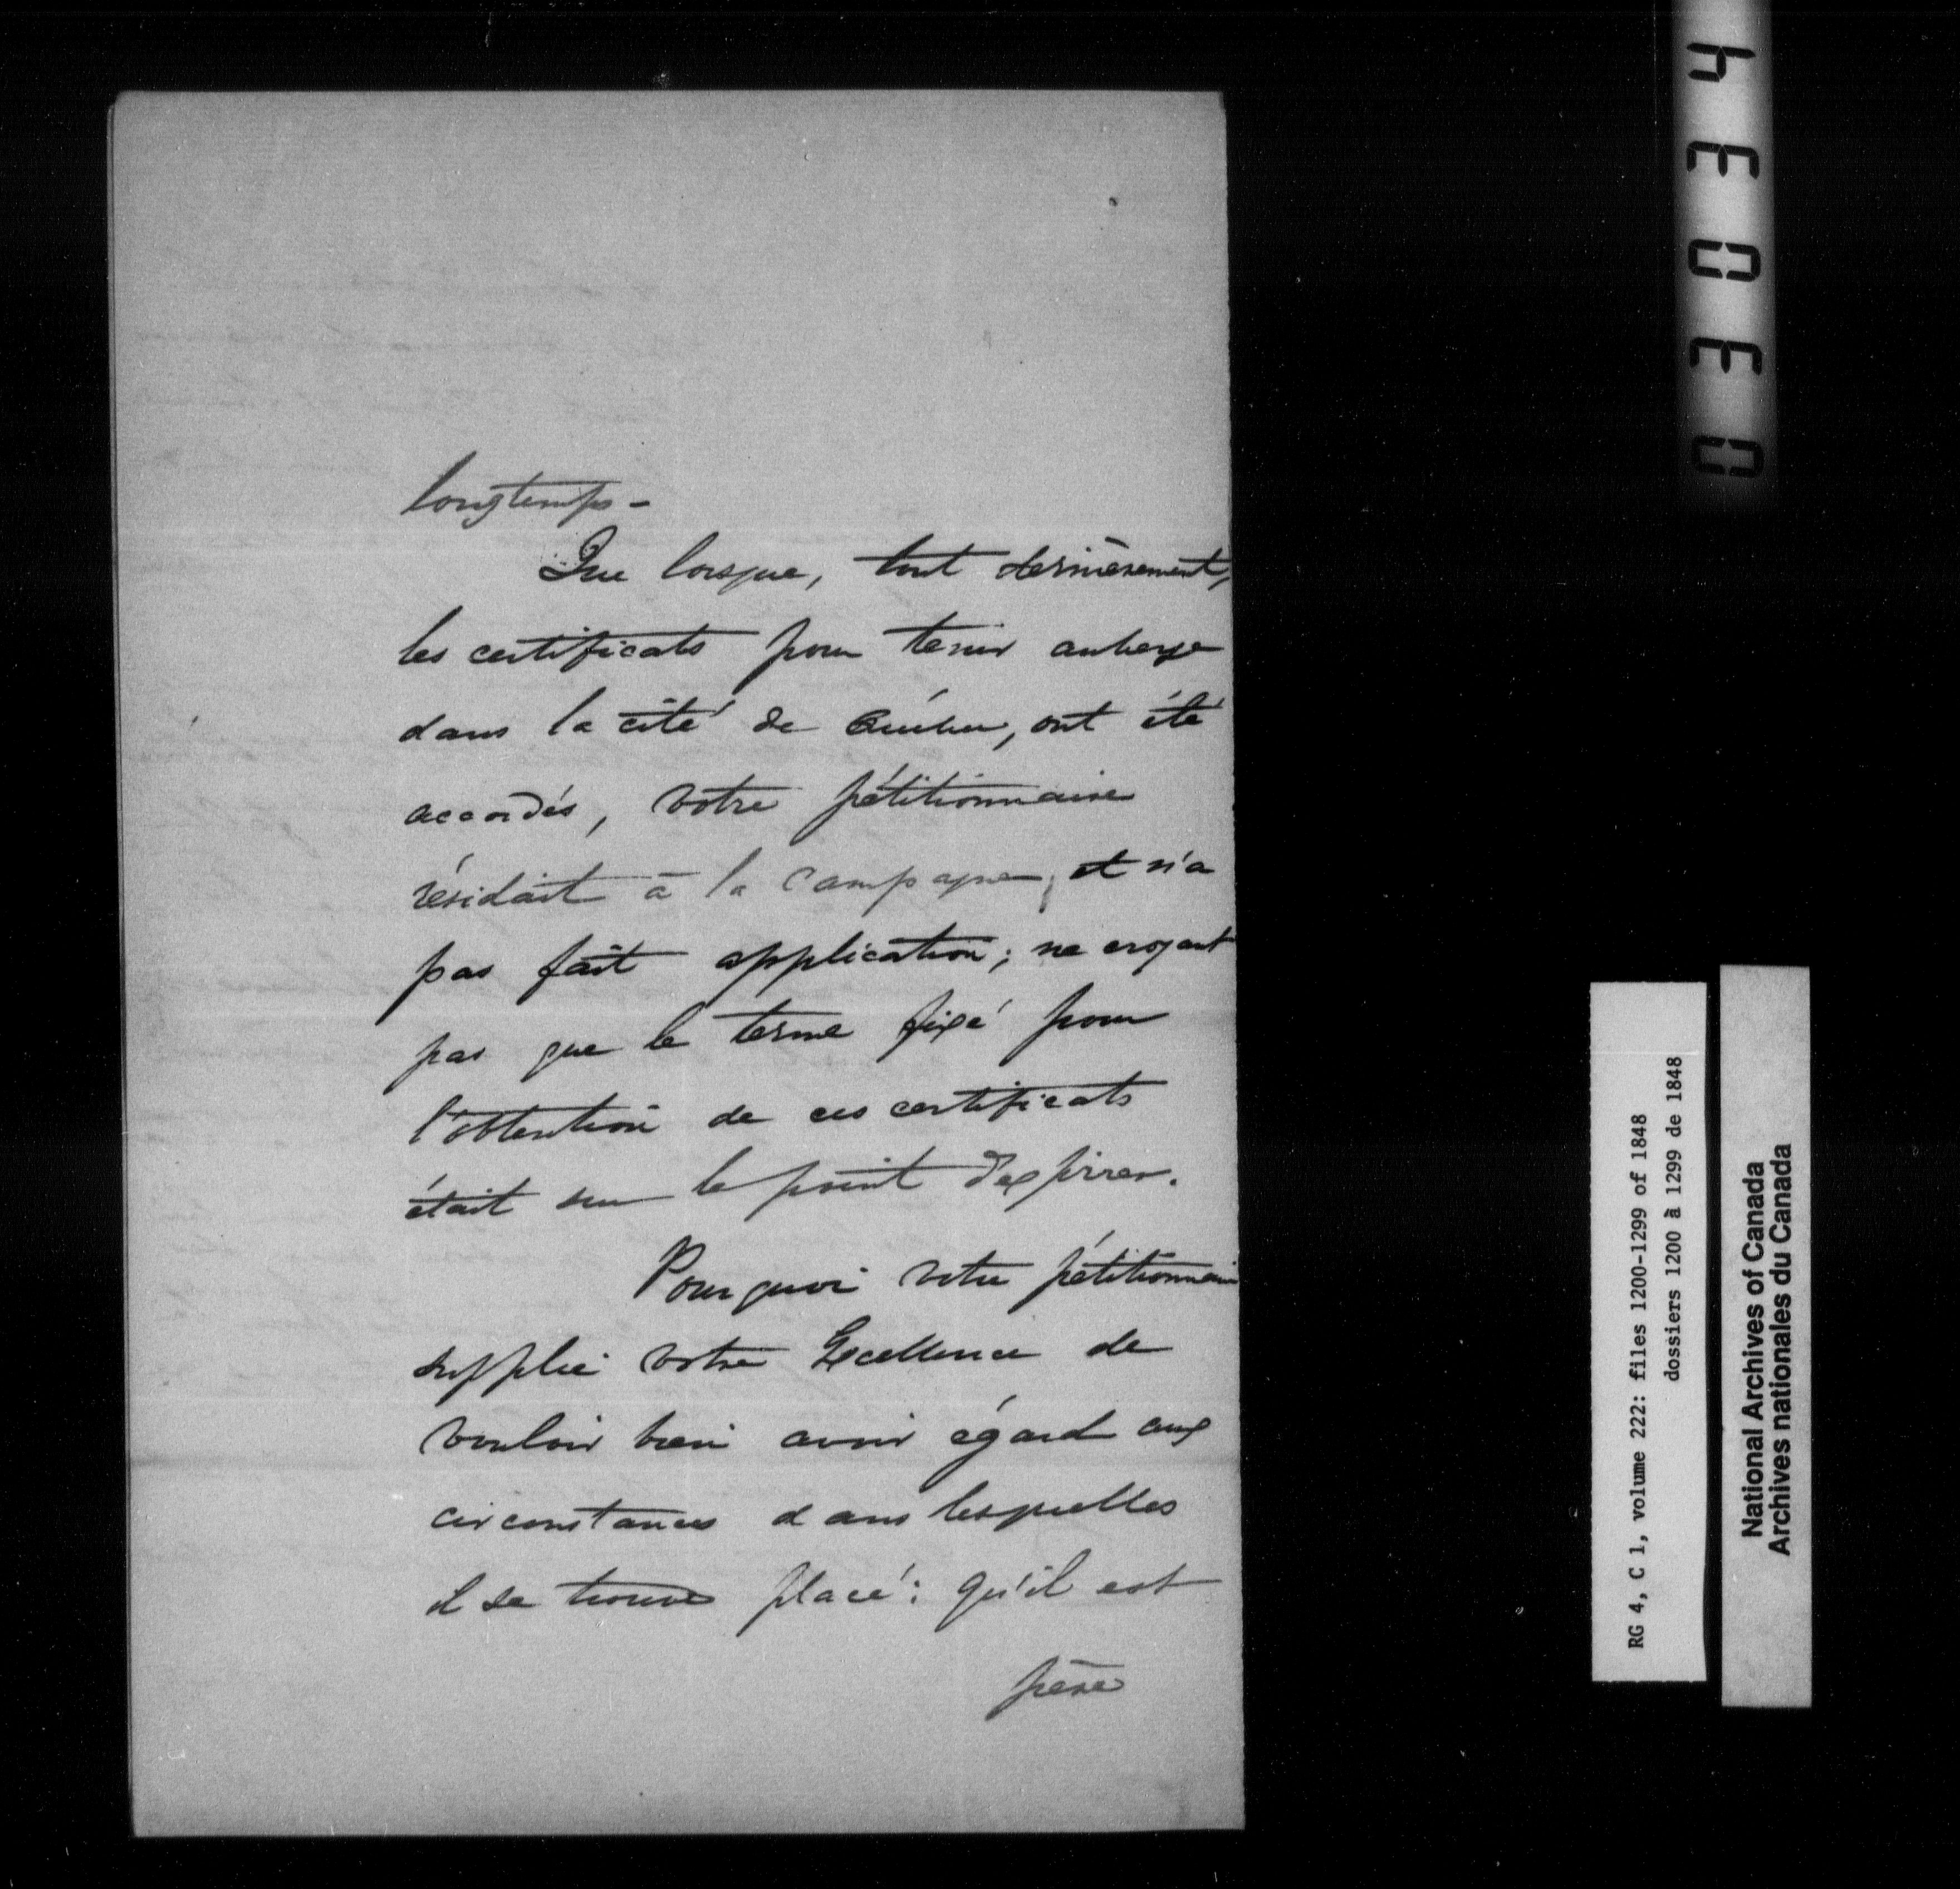 longtemps -
Que lorsque, tout dernièrement,
les certificats pour tenir auberge
dans la cité de Québec, ont été
accordés, votre pétitionnaire
résidait à la campagne, et n'a
pas fait application; ne croyant
pas que le terme fixé pour
l'obtention de ces certificats
était sur le point d'expirer.
Pourquoi votre pétitionnaire
supplie votre Excellence de
vouloir bien avoir égard aux
circonstances dans lesquelles
il se trouve placé: qu'il est
père
03034
RG 4, C 1, volume 222: files 1200-1299 of 1848
dossiers 1200 à 1299 de 1848
National Archives of Canada
Archives nationales du Canada